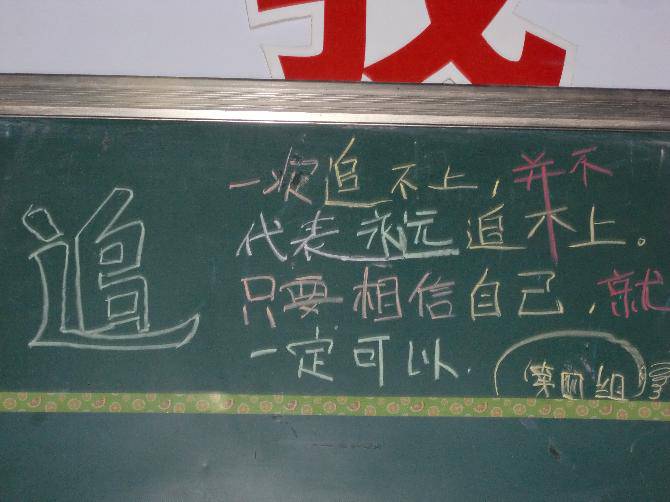 追
一次追不上，并不
代表永元追不上。
只要相信自己，就
一定可以.
第四组